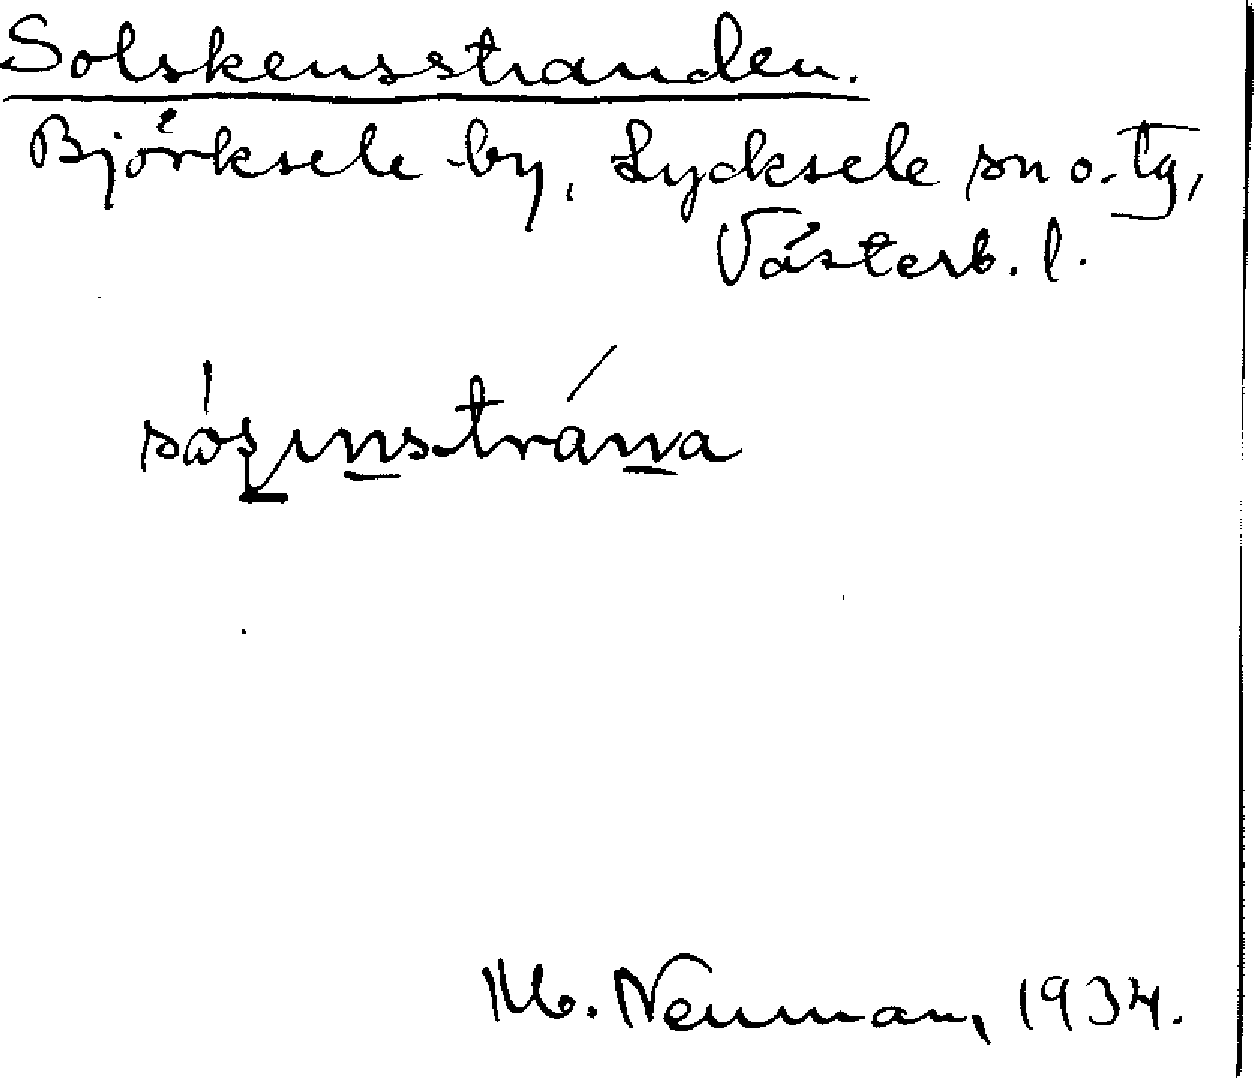 Solskensstranden.
Björksele by, Lycksele sn o. Tg,
Västerb. l.
M. Neuman, 1934.